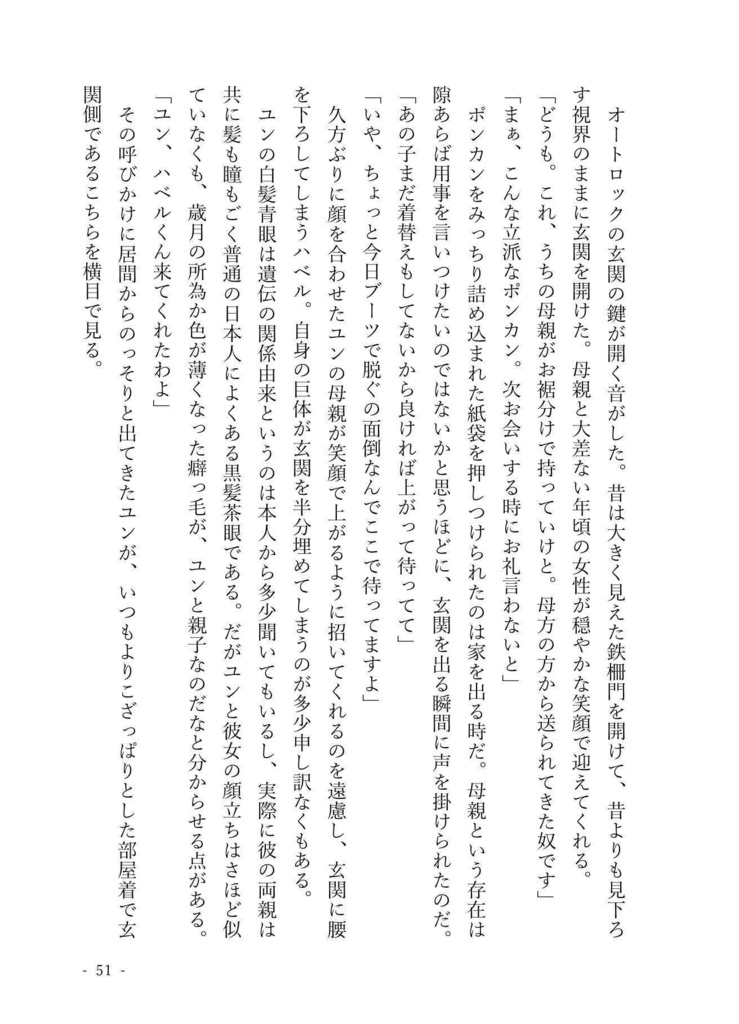 オートロックの玄関の鍵が開く音がした。昔は大きく見えた鉄柵門を開けて、昔よりも見下ろ
す視界のままに玄関を開けた。母親と大差ない年頃の女性が穏やかな笑顔で迎えてくれる。
「どうも。これ、うちの母親がお裾分けで持っていけと。母方の方から送られてきた奴です」
「まぁ、こんな立派なポンカン。次お会いする時にお礼言わないと」
ポンカンをみっちり詰め込まれた紙袋を押しつけられたのは家を出る時だ。母親という存在は
隙あらば用事を言いつけたいのではないかと思うほどに、玄関を出る瞬間に声を掛けられたのだ。
「あの子まだ着替えもしてないから良ければ上がって待ってて」
「いや、ちょっと今日ブーツで脱ぐの面倒なんでここで待ってますよ」
久方ぶりに顔を合わせたユンの母親が笑顔で上がるように招いてくれるのを遠慮し、玄関に腰
を下ろしてしまうハベル。自身の巨体が玄関を半分埋めてしまうのが多少申し訳なくもある。
ユンの白髪青眼は遺伝の関係由来というのは本人から多少聞いてもいるし、実際に彼の両親は
共に髪も瞳もごく普通の日本人によくある黒髪茶眼である。だがユンと彼女の顔立ちはさほど似
ていなくも、歳月の所為か色が薄くなった癖っ毛が、ユンと親子なのだなと分からせる点がある。
「ユン、ハベルくん来てくれたわよ」
その呼びかけに居間からのっそりと出てきたユンが、いつもよりこざっぱりとした部屋着で玄
関側であるこちらを横目で見る。
- 51 -